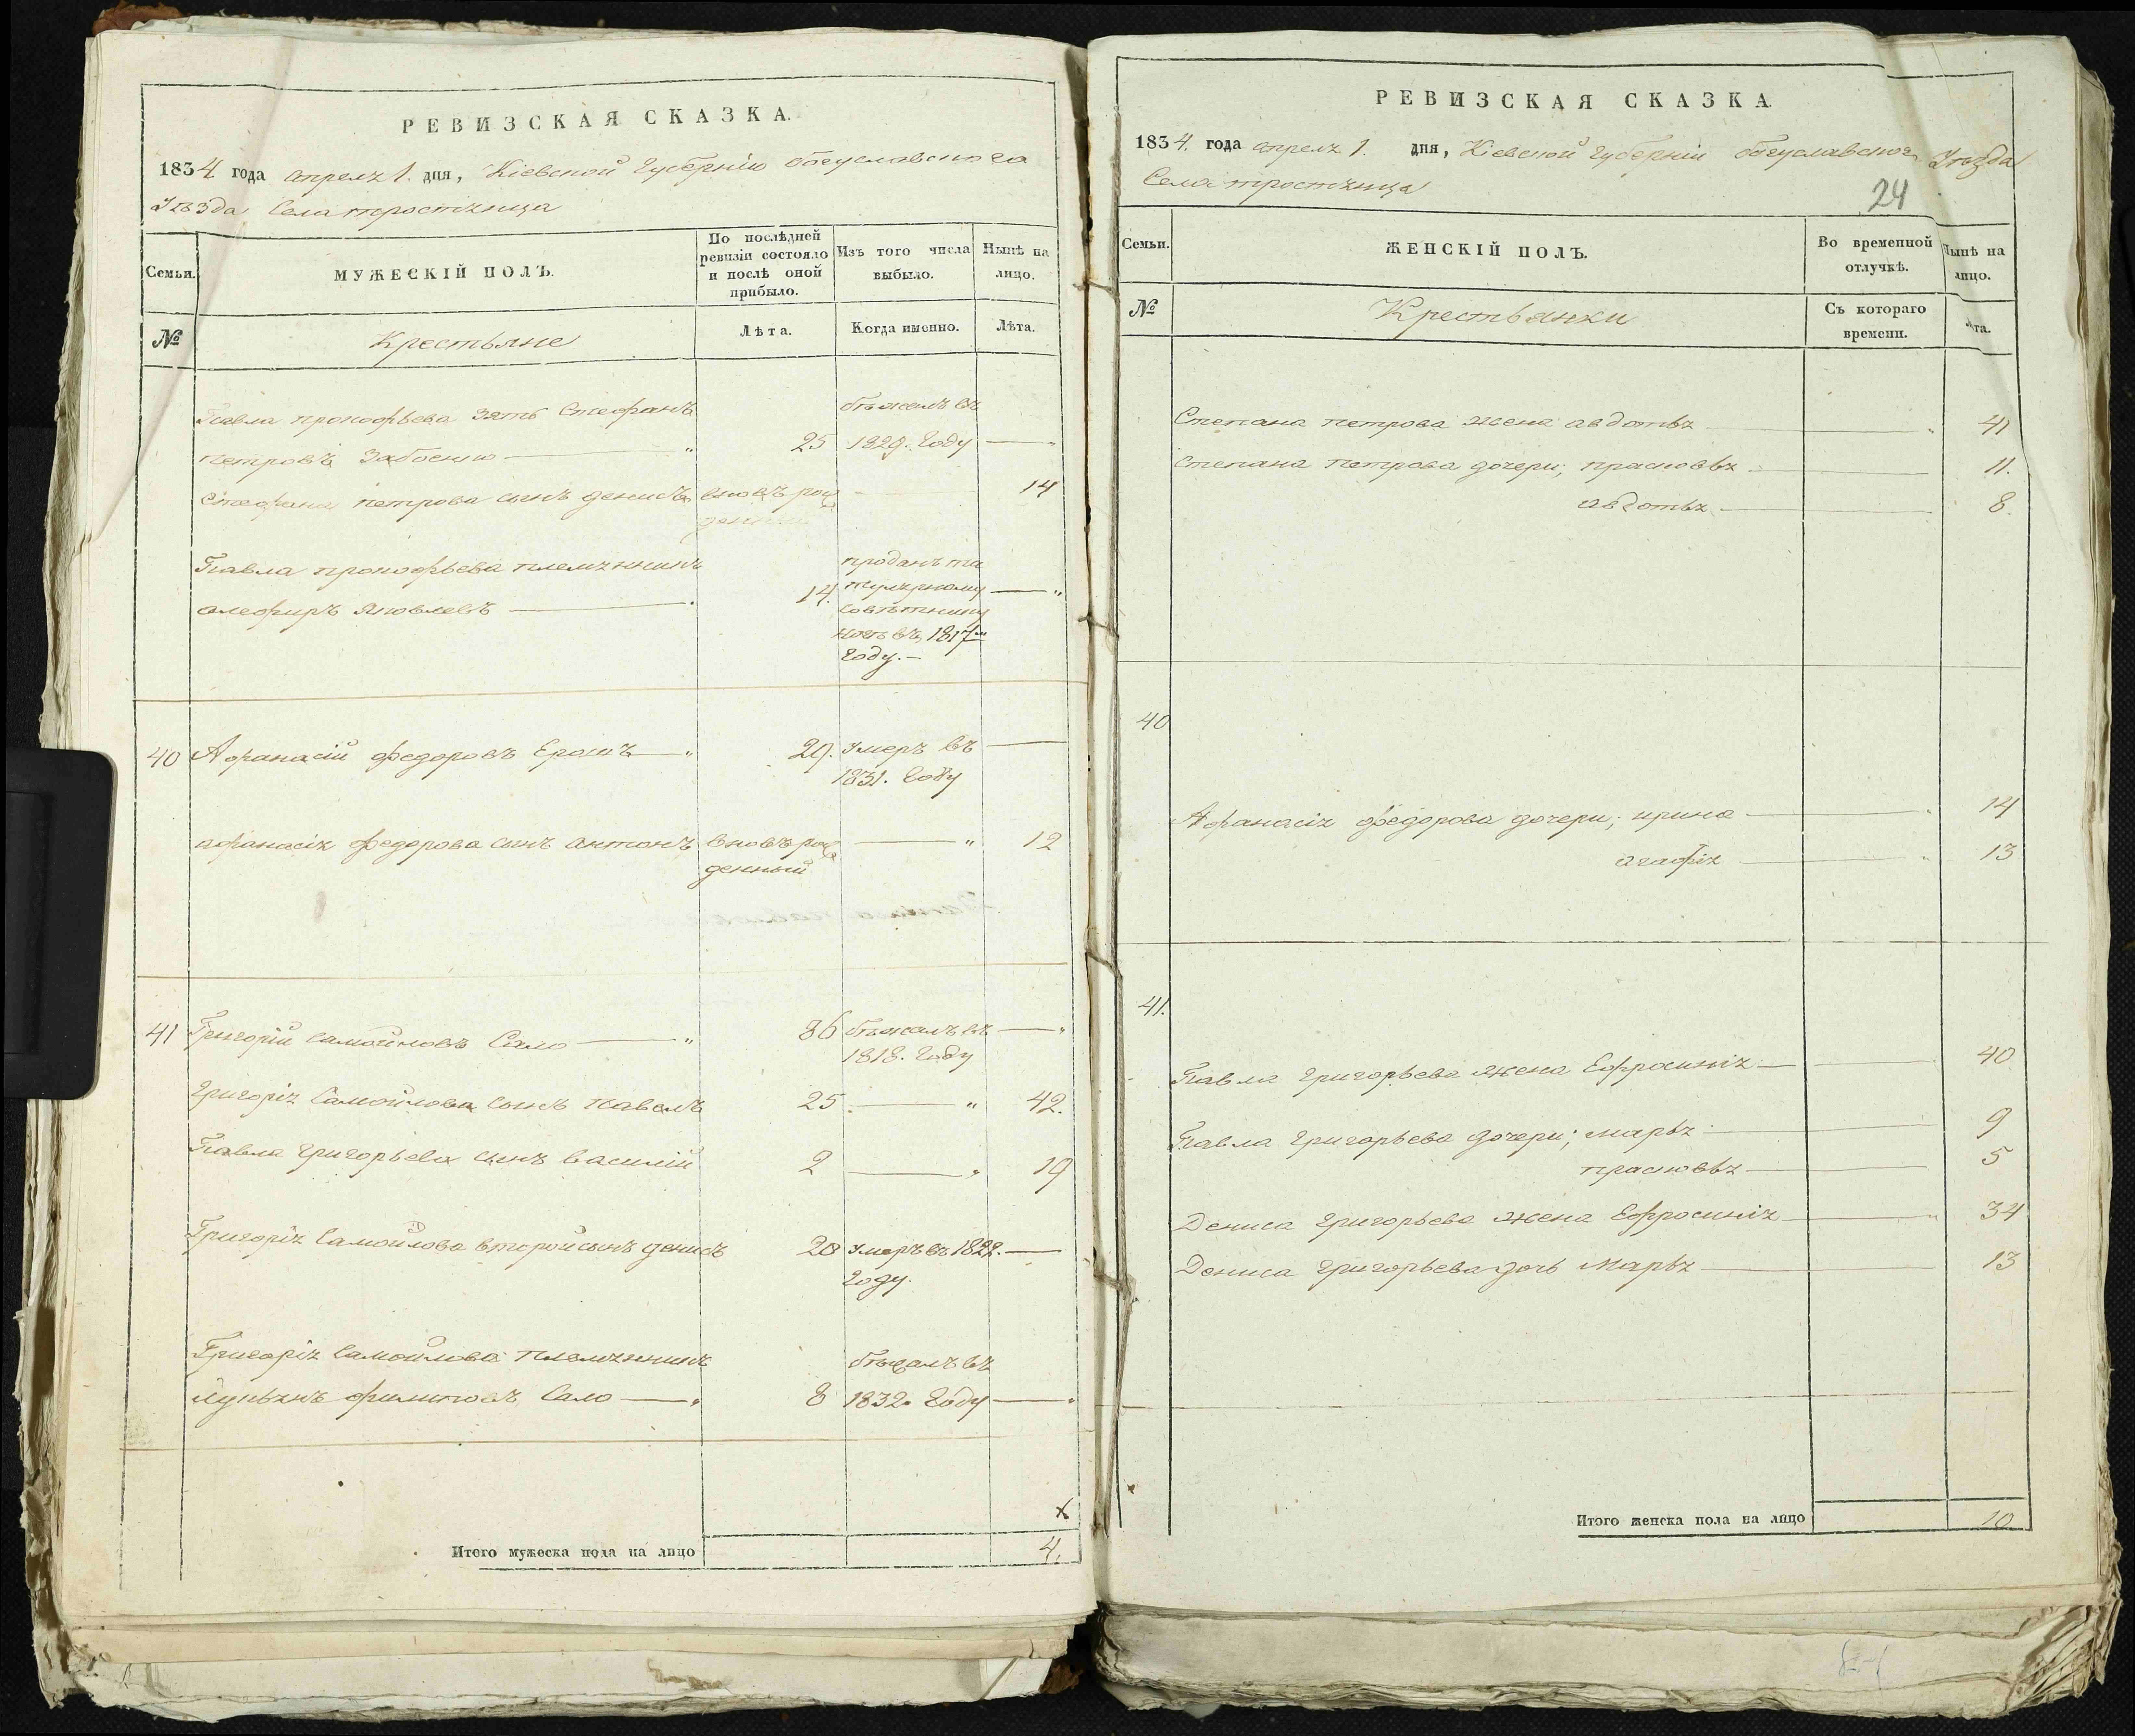 РЕВИЗСКАЯ СКАЗКА.
1834 года апреля 1. дня, Кіевской Губерніи богуславскаго
Уѣзда Села тростянца
Семьи.
МУЖЕСКІЙ ПОЛЪ.
По послѣдней ревизіи состояло и послѣ оной прибыло.
Изъ того числа выбыло.
Нынѣ на лицо.
№
Крестьяне
Лѣта.
Когда именно.
Лѣта.
Павла прокофьева зять Стефанъ бѣжалъ въ
петровъ " 25 1829. Году — "
Стефана петрова сынъ денисъ вновь рож — 14
денный
Павла прокофьева племянникъ проданъ ти
алефиръ Яковлевъ — 14. тулярному — "
совѣтнику
въ 1817м
Году. —
40 Афанасій федоровъ Ерошъ — " 29. умеръ въ —
1831. Году
афанасія федорова сынъ антонъ вновь рож — " 12
денный
41 Григорій самойловъ Сало — " 36 бѣжалъ въ — "
1818. Году
Григорія Самойлова сынъ павелъ 25. — " 42.
Павла григорьева сынъ василій 2 — " 19
Григорія Самойлова второй сынъ денисъ 20 умеръ въ 1822. —
Году.
Григорія Самойлова племянникъ бѣжалъ въ
лукьянъ филиповъ Сало — " 8 1832. Году — "
х
Итого мужеска пола на лицо 4.
РЕВИЗСКАЯ СКАЗКА.
1834. года апреля 1. дня, Кіевской губерніи богуславского Уѣзда
Села тростянца
24
Семьи.
ЖЕНСКІЙ ПОЛЪ.
Во временной отлучкѣ.
Нынѣ на лицо.
№
Крестьянки
Съ котораго времени.
Лѣта.
Степана петрова жена авдотья — " 41
степана петрова дочери; прасковья — 11.
авдотья — 8.
40
Афанасія федорова дочери; ирина — 14
агафія — " 13
41.
Павла григорьева жена Ефросинія — 40
Павла григорьева дочери; марья — 9
прасковья — 5
Дениса григорьева жена Ефросинія — " 34
Дениса григорьева дочь марья — 13
Итого женска пола на лицо 10